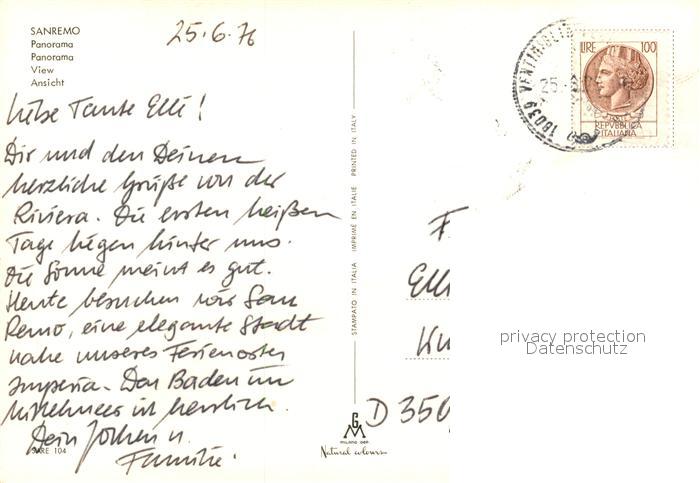 SANREMO
Panorama
Panorama
View
Ansicht
25.6.76
Liebe Tante Elli!
Dir und den Deinen
herzliche Grüße von der
Riviera. Die ersten heißen
Tage liegen hinter uns.
Die Sonne meint es gut.
Heute besuchen wir San
Remo, eine elegante Stadt
nahe unseres Ferienortes
Imperia. Das Baden im
Mittelmeer ist herrlich.
Dein Jochen u.
Familie.
SARE 104
STAMPATO IN ITALIA IMPRIMÉ EN ITALIE PRINTED IN ITALY
G
M
MILANO
Natural colours
18039 VENTIMIGLIA
25.
LIRE 100
REPVBBLICA
ITALIANA
F
Elli
D 350
privacy protection
Datenschutz